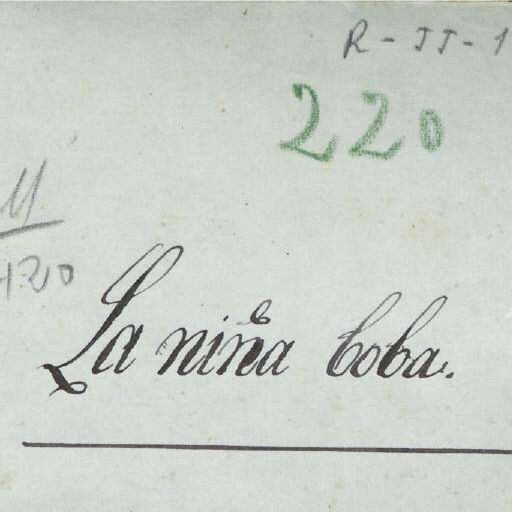 R-II-1
220
M
120
La niña boba.